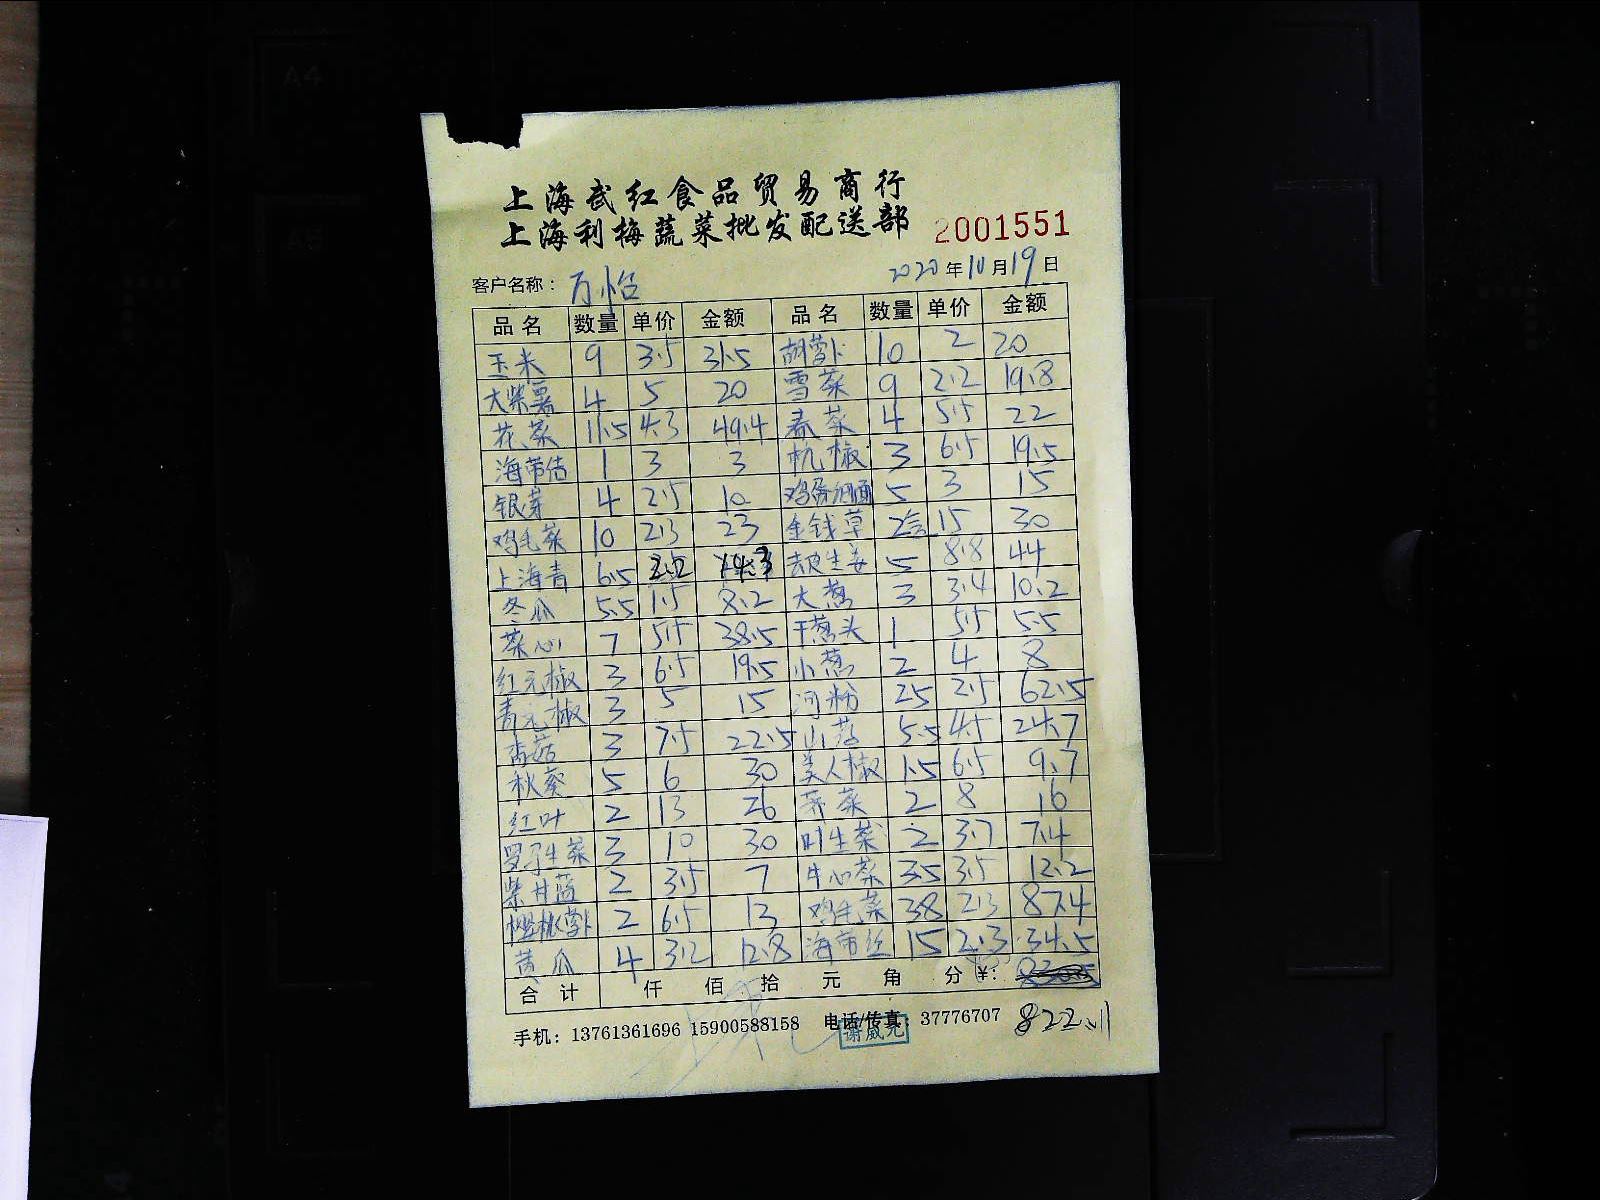 A4
A5
上海武红食品贸易商行
上海利梅蔬菜批发配送部 2001551
客户名称： 万怡 2020年10月19日
品名 数量 单价 金额 品名 数量 单价 金额
玉米 9 3.5 31.5 胡萝卜 10 2 20
大紫薯 4 5 20 雪菜 9 2.2 19.8
花菜 11.5 4.3 49.4 春菜 4 5.5 22
海带结 1 3 3 杭椒 3 6.5 19.5
银芽 4 2.5 10 鸡蛋细面 5 3 15
鸡毛菜 10 2.3 23 金钱草 2盒 15 30
上海青 6.5 2.2 14.3 去皮生姜 5 8.8 44
冬瓜 5.5 1.5 8.2 大葱 3 3.4 10.2
菜心 7 5.5 38.5 干葱头 1 5.5 5.5
红元椒 3 6.5 19.5 小葱 2 4 8
青元椒 3 5 15 河粉 25 2.5 62.5
香菇 3 7.5 22.5 山药 5.5 4.5 24.7
秋葵 5 6 30 美人椒 1.5 6.5 9.7
红叶 2 13 26 荠菜 2 8 16
罗马生菜 3 10 30 叶生菜 2 3.7 7.4
紫甘蓝 2 3.5 7 牛心菜 3.5 3.5 12.2
樱桃萝卜 2 6.5 13 鸡毛菜 38 2.3 87.4
黄瓜 4 3.2 12.8 海带丝 15 2.3 34.5
合计 仟 佰 拾 元 角 分 ¥：
手机：13761361696 15900588158 电话/传真：37776707 822.11
谢威元